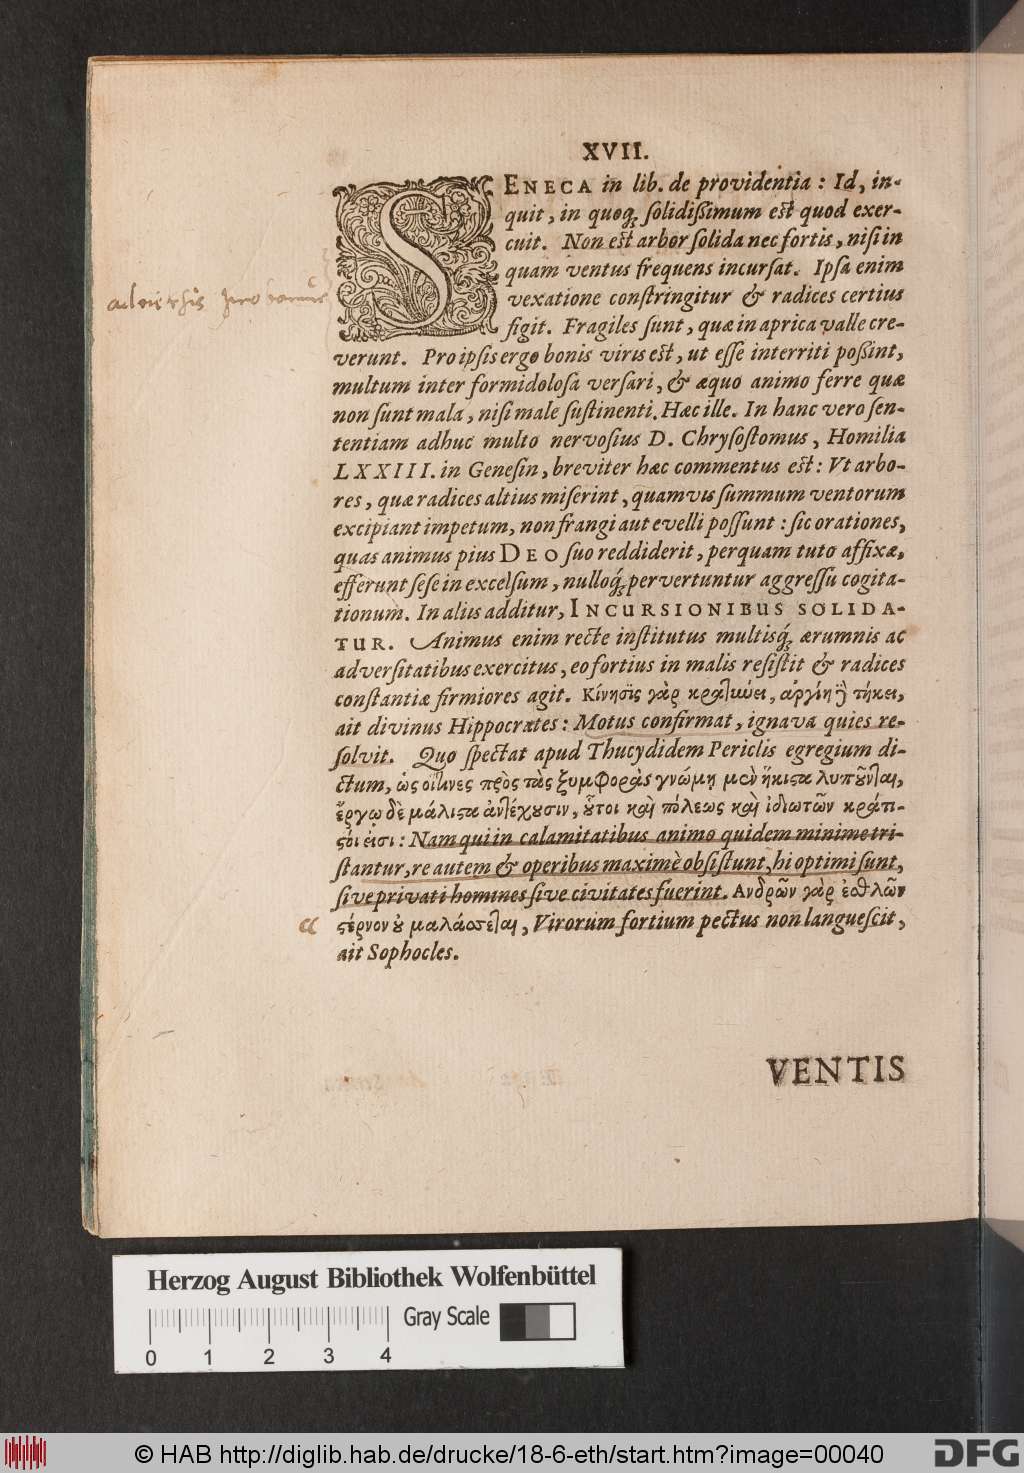 XVII.
SENECA in lib. de providentia : Id, in-
quit, in quoq́; ſolidißimum eſt quod exer-
cuit. Non eſt arbor ſolida nec fortis, niſi in
quam ventus frequens incurſat. Ipſa enim
adversis probamur
vexatione conſtringitur & radices certius
figit. Fragiles ſunt, quæ in aprica valle cre-
verunt. Pro ipſis ergo bonis viris eſt, ut eſſe interriti poßint,
multum inter formidoloſa verſari, & æquo animo ferre quæ
non ſunt mala, niſi male ſuſtinenti. Hæc ille. In hanc vero ſen-
tentiam adhuc multo nervoſius D. Chryſoſtomus, Homilia
LXXIII. in Geneſin, breviter hæc commentus eſt: Vt arbo-
res, quæ radices altius miſerint, quamvis ſummum ventorum
excipiant impetum, non frangi aut evelli poſſunt : ſic orationes,
quas animus pius DEO ſuo reddiderit, perquam tuto affixæ,
efferunt ſeſe in excelſum, nulloq́; pervertuntur aggreſſu cogita-
tionum. In alius additur, INCURSIONIBUS SOLIDA-
TUR. Animus enim recte inſtitutus multisq́; ærumnis ac
adverſitatibus exercitus, eo fortius in malis reſiſtit & radices
conſtantiæ firmiores agit. Κίνησις γὰρ κρατύνει, ἀργίη ἢ τήκει,
ait divinus Hippocrates: Motus confirmat, ignava quies re-
ſolvit. Quo ſpectat apud Thucydidem Periclis egregium di-
ctum, ὡς οἵτινες πρὸς τὰς ξυμφορὰς γνώμῃ μὲν ἥκιϛα λυποῦνται,
ἔργῳ δὲ μάλιϛα ἀντέχουσιν, οὗτοι καὶ πόλεως καὶ ἰδιωτῶν κράτι-
ϛοί εἰσι : Nam qui in calamitatibus animo quidem minime tri-
ſtantur, re autem & operibus maximè obſiſtunt, hi optimi ſunt,
ſive privati homines ſive civitates fuerint. Ἀνδρῶν γὰρ ἐσθλῶν
ϛέρνον οὐ μαλάσσεται, Virorum fortium pectus non langueſcit,
ait Sophocles.
VENTIS
Herzog August Bibliothek Wolfenbüttel
Gray Scale
0 1 2 3 4
© HAB http://diglib.hab.de/drucke/18-6-eth/start.htm?image=00040
DFG